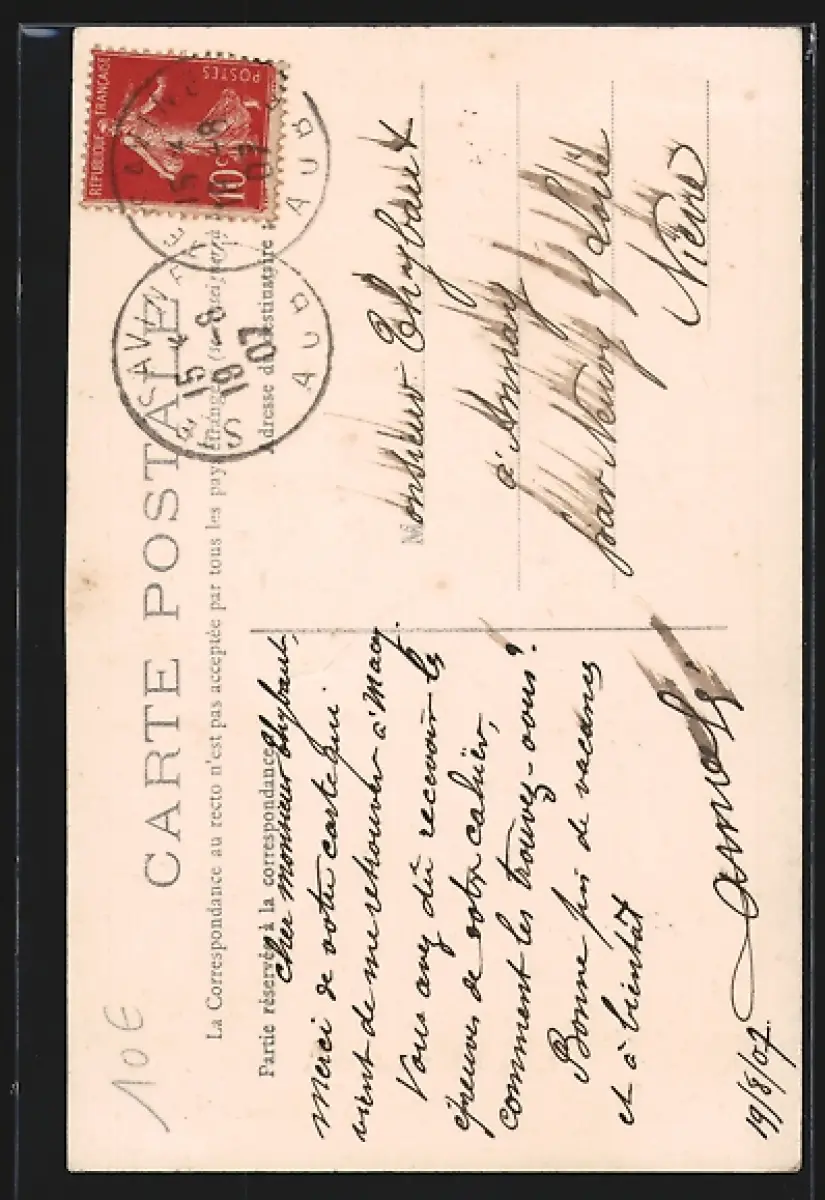 10€
CARTE POSTALE
La Correspondance au recto n'est pas acceptée par tous les pays étrangers
Partie réservée à la correspondance
Adresse du destinataire
REPUBLIQUE FRANÇAISE
POSTES
10
15 -8
07
AUB
SAVINE
15 -8
19 07
AUB
Cher monsieur Thybaut,
Merci de votre carte qui
vient de me retrouver à Macey.
Vous avez dû recevoir les
épreuves de votre cahier,
comment les trouvez-vous?
Bonne fin de vacances
et à bientôt
19/8/07.
Monsieur Thybaut
à Annay
par Neuvy s/ Loire
Nièvre